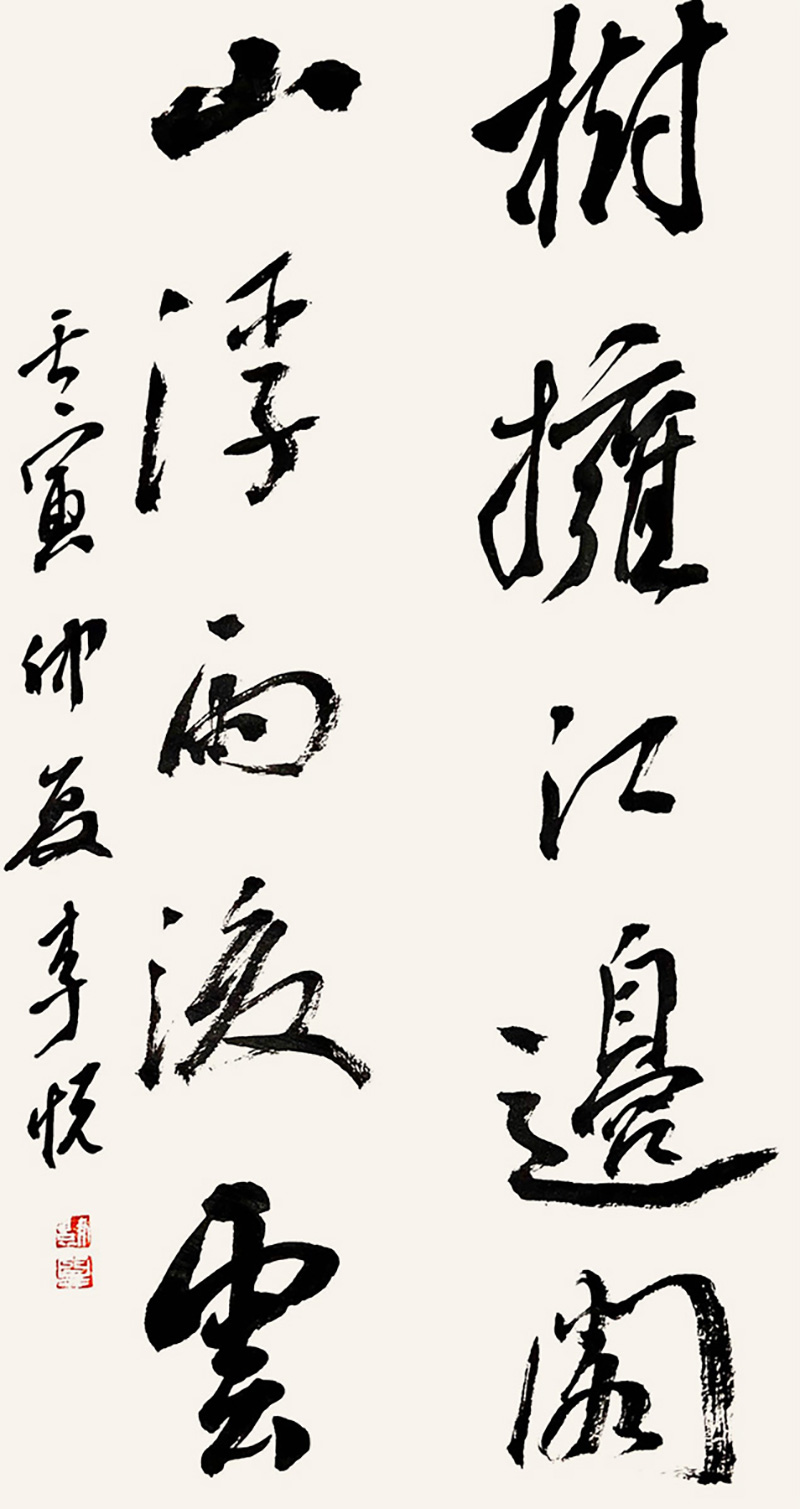 樹擁江邊閣
山浮雨後雲
壬寅仲夏李悅